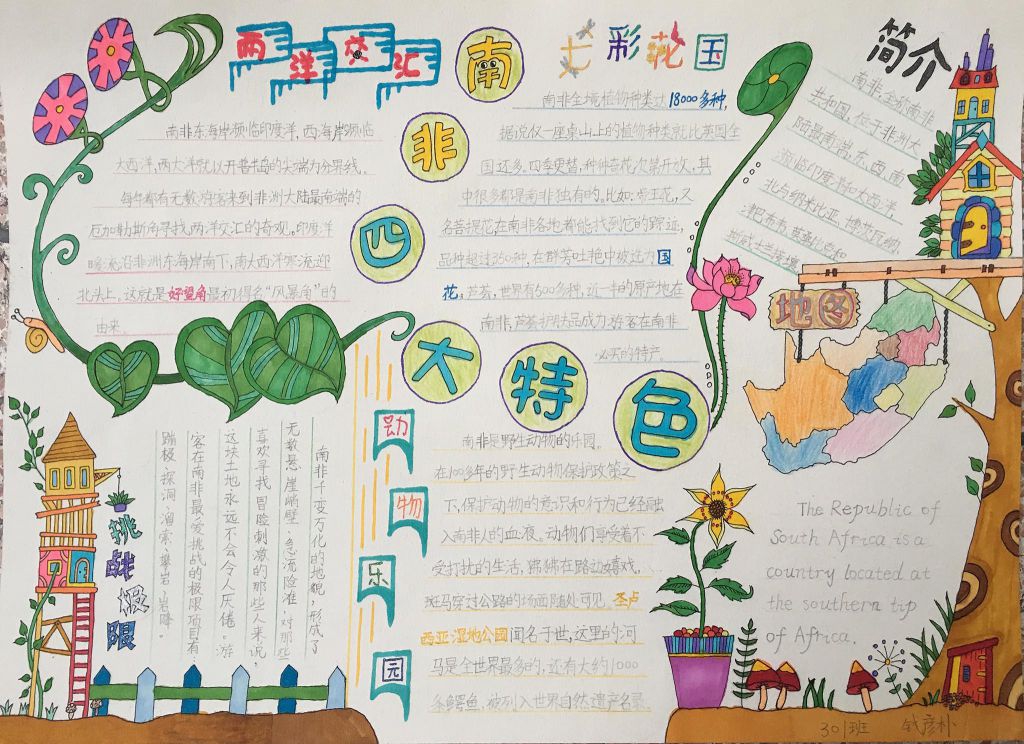 两洋交汇
南非四大特色
七彩花园
简介
南非东海岸濒临印度洋,西海岸濒临
大西洋,两大洋就以开普半岛的尖端为分界线。
每年都有无数游客来到非洲大陆最南端的
厄加勒斯角寻找两洋交汇的奇观。印度洋
暖流沿非洲东海岸南下,南大西洋寒流迎
北头上。这就是好望角最初得名“风暴角”的
由来。
南非全境植物种类达18000多种,
据说仅一座桌山上的植物种类就比英国全
国还多。四季更替,种种奇花次第开放,其
中很多都是南非独有的。比如:帝王花,又
名菩提花在南非各地都能找到它的踪迹,
品种超过350种,在群芳吐艳中被选为国
花,芦荟,世界有500多种,近一半的原产地在
南非,芦荟护肤品成为游客在南非
必买的特产。
南非,全称南非
共和国,位于非洲大
陆最南端,东、西、南
濒临印度洋和大西洋,
北与纳米比亚,博茨瓦纳,
津巴布韦,莫桑比克和
斯威士兰接壤
地图
挑战极限
南非千变万化的地貌,形成了
无数悬崖峭壁、急流险滩,对那些
喜欢寻找冒险刺激的那些人来说,
这块土地永远不会令人厌倦。游
客在南非最爱挑战的极限项目有:
蹦极、探洞、溜索、攀岩、岩降。
动物乐园
南非是野生动物的乐园。
在100多年的野生动物保护政策之
下,保护动物的意识和行为已经融
入南非人的血液。动物们享受着不
受打扰的生活,狒狒在路边嬉戏,
斑马穿过公路的场面随处可见。圣卢
西亚湿地公园闻名于世,这里的河
马是全世界最多的,还有大约1000
条鳄鱼,被列入世界自然遗产名录。
The Republic of
South Africa is a
country located at
the southern tip
of Africa.
301班 钱彦朴